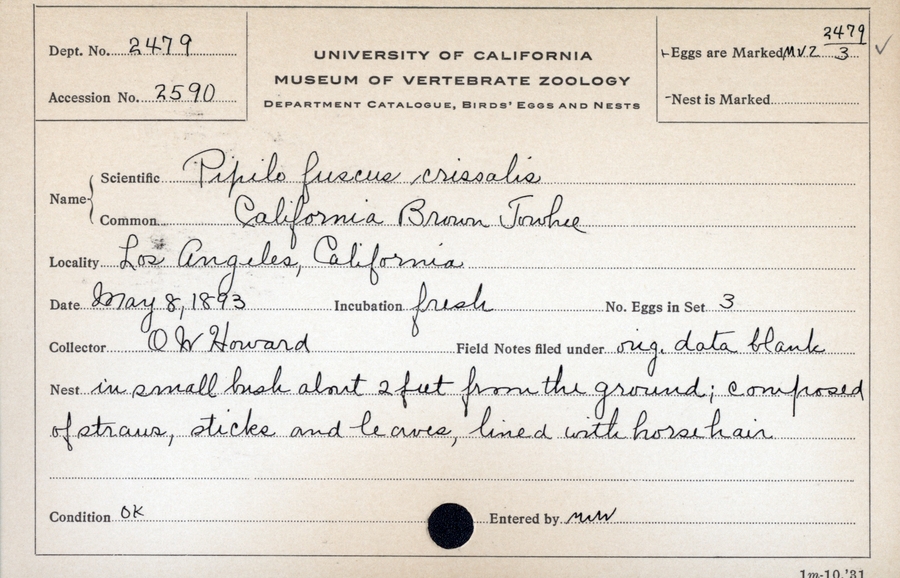 Dept. No. 2479
Accession No. 2590
UNIVERSITY OF CALIFORNIA
MUSEUM OF VERTEBRATE ZOOLOGY
DEPARTMENT CATALOGUE, BIRDS' EGGS AND NESTS
Eggs are Marked MVZ 2479/3 ✓
Nest is Marked
Name
Scientific Pipilo fuscus crissalis
Common California Brown Towhee
Locality Los Angeles, California
Date May 8, 1893 Incubation fresh No. Eggs in Set 3
Collector O W Howard Field Notes filed under orig. data blank
Nest in small bush about 2 feet from the ground; composed
of straws, sticks and leaves, lined with horse hair
Condition OK Entered by
1m-10,'31